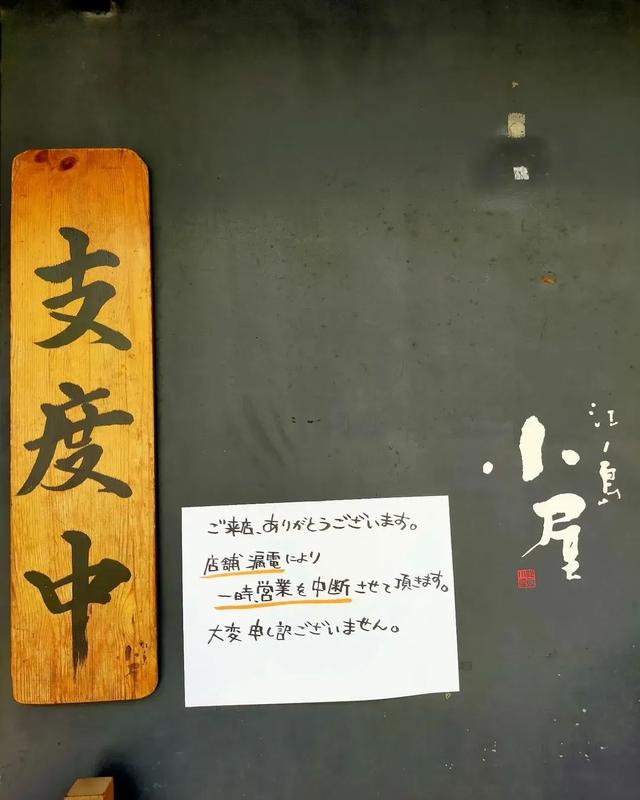 支度中
ご来店、ありがとうございます。
店舗漏電により
一時、営業を中断させて頂きます。
大変申し訳ございません。
江ノ島
小屋